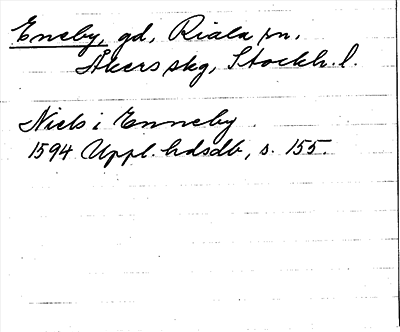 Eneby, gd, Riala sn,
Åkers skg, Stockh. l.
Niels i Enneby
1594 Uppl. hdsdb, s. 155.